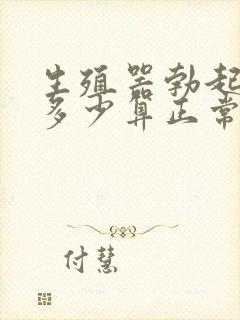 生殖器勃起
多少算正常
付慧